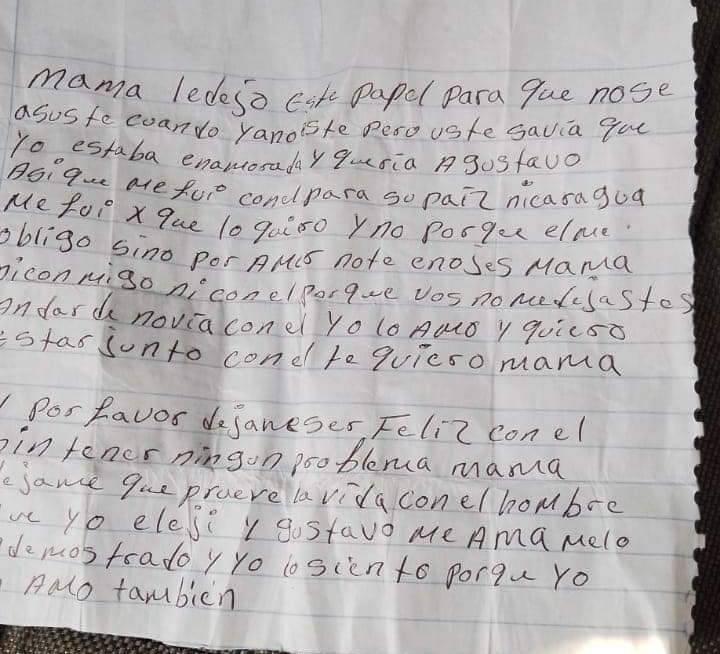 mama ledejo este papel para que nose
asuste cuando yanoiste pero uste savia que
yo estaba enamorada y queria A gustavo
Asi que me fui conelpara su paiz nicaragua
Me foi x que lo quiro y no porque elme
obligo sino por Amor note enojes Mama
niconmigo ni con el porque vos no medejastes
andar de novia con el yo lo Amo y quiero
estar junto con el te quiero mama
y por favor dejameser Feliz con el
sin tener ningun problema mama
dejame que prueve la vida con el hombre
que yo eleji y gustavo me Ama melo
demostrado y yo lo siento porqu yo
Amo tambien